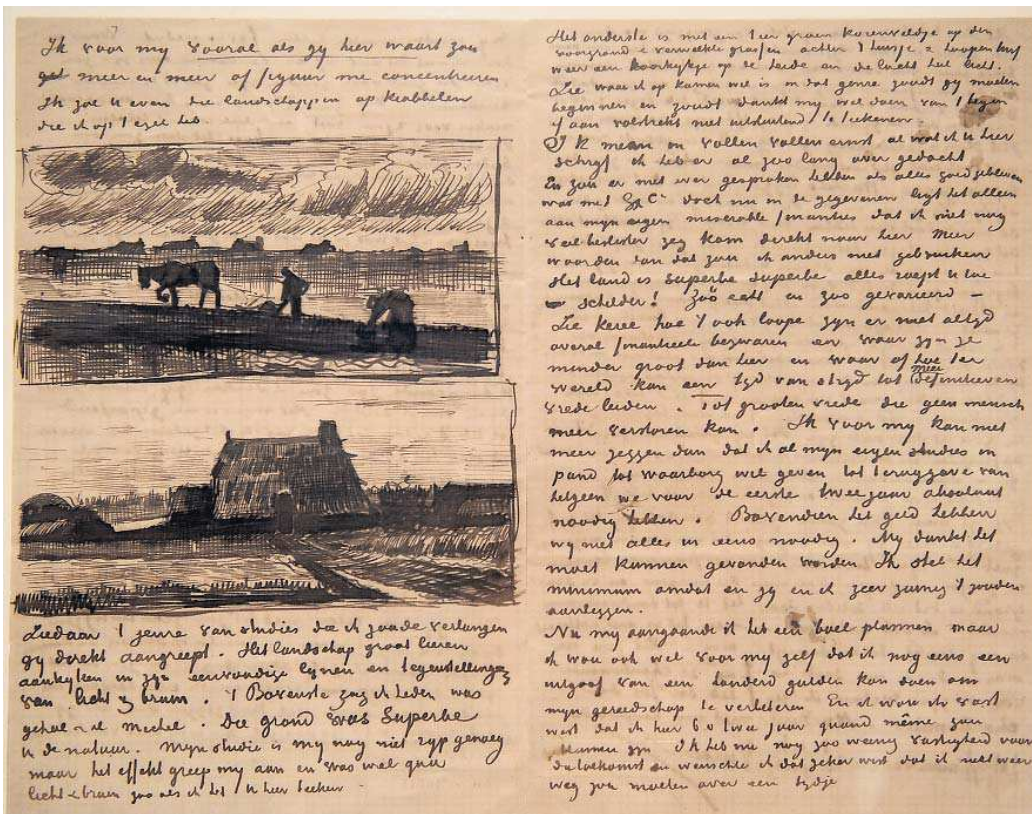 Ik voor my vooral als gy hier waart zou
meer en meer of figuur me concentreeren
Ik zal u even die landschappen op krabbelen
die ik op 1 ezel heb
Ziedaar 1 genre van studies die ik zoude verlangen
gy direkt aangreept. Het landschap groot leeren
aankyken in zyn eenvoudige lynen en tegenstellingen
van licht & bruin. 't Bovenste zag ik heden was
geheel Michel. Die grond was Superbe
in de natuur. Myn studie is my nog niet ryp genoeg
maar het effekt greep my aan en was wel qua
licht & bruin zoo als ik het u hier teeken
Het onderste is met een 1er groen korenveldje op den
voorgrond & verwelkte grasjen achter 't huisje 2
weer een doorkykje op de heide en de lucht heel licht.
Zie waar ik op kamen wil is in dat genre zoudt gy moeten
beginnen en zoudt dunkt my wel doen van 1 begin
af aan volstrekt niet uitsluitend te teekenen.
Ik meen in vollen vollen ernst al wat ik u hier
schryf ik heb er al zoo lang over gedacht
En zou er met over gesproken hebben als alles goed gebleven
was met G&Cie doch nu in de gegevenen ligt het alleen
aan myn eigen miserable finanties dat ik niet nog
veel beslister zeg kom direkt naar hier Meer
woorden dan dat zou ik anders niet gebruiken
Het land is superbe superbe alles roept u toe
schilder! Zoo echt en zoo gevarieerd –
Zie kerel hoe 't ook loope zyn er niet altyd
overal finantieele bezwaren en waar zyn ze
minder groot dan hier en waar of hoe ter
wereld kan een tyd van stryd tot meer definitieven
vrede leiden. Tot grooten vrede die geen mensch
meer verstoren kan. Ik voor my kan niet
meer zeggen dan dat ik al myn eigen studies in
pand tot waarborg wil geven tot teruggave van
hetgeen we voor de eerste twee jaar absoluut
noodig hebben. Bovendien het geld hebben
wy niet alles in eens noodig. My dunkt het
moet kunnen gevonden worden Ik stel het
minimum omdat en gy en ik zeer zuinig 't zouden
aanleggen.
Nu my aangaande ik heb een boel plannen maar
ik wou ook wel voor my zelf dat ik nog eens een
uitgaaf van een honderd gulden kon doen om
myn gereedschap te verbeteren En ik wou ik vast
wist dat ik hier b v twee jaar quand même zou
kunnen zyn Ik heb nu nog zoo weinig vastigheid voor
de toekomst en wenschte ik dat zeker wist dat ik niet weer
weg zou moeten over een tydje